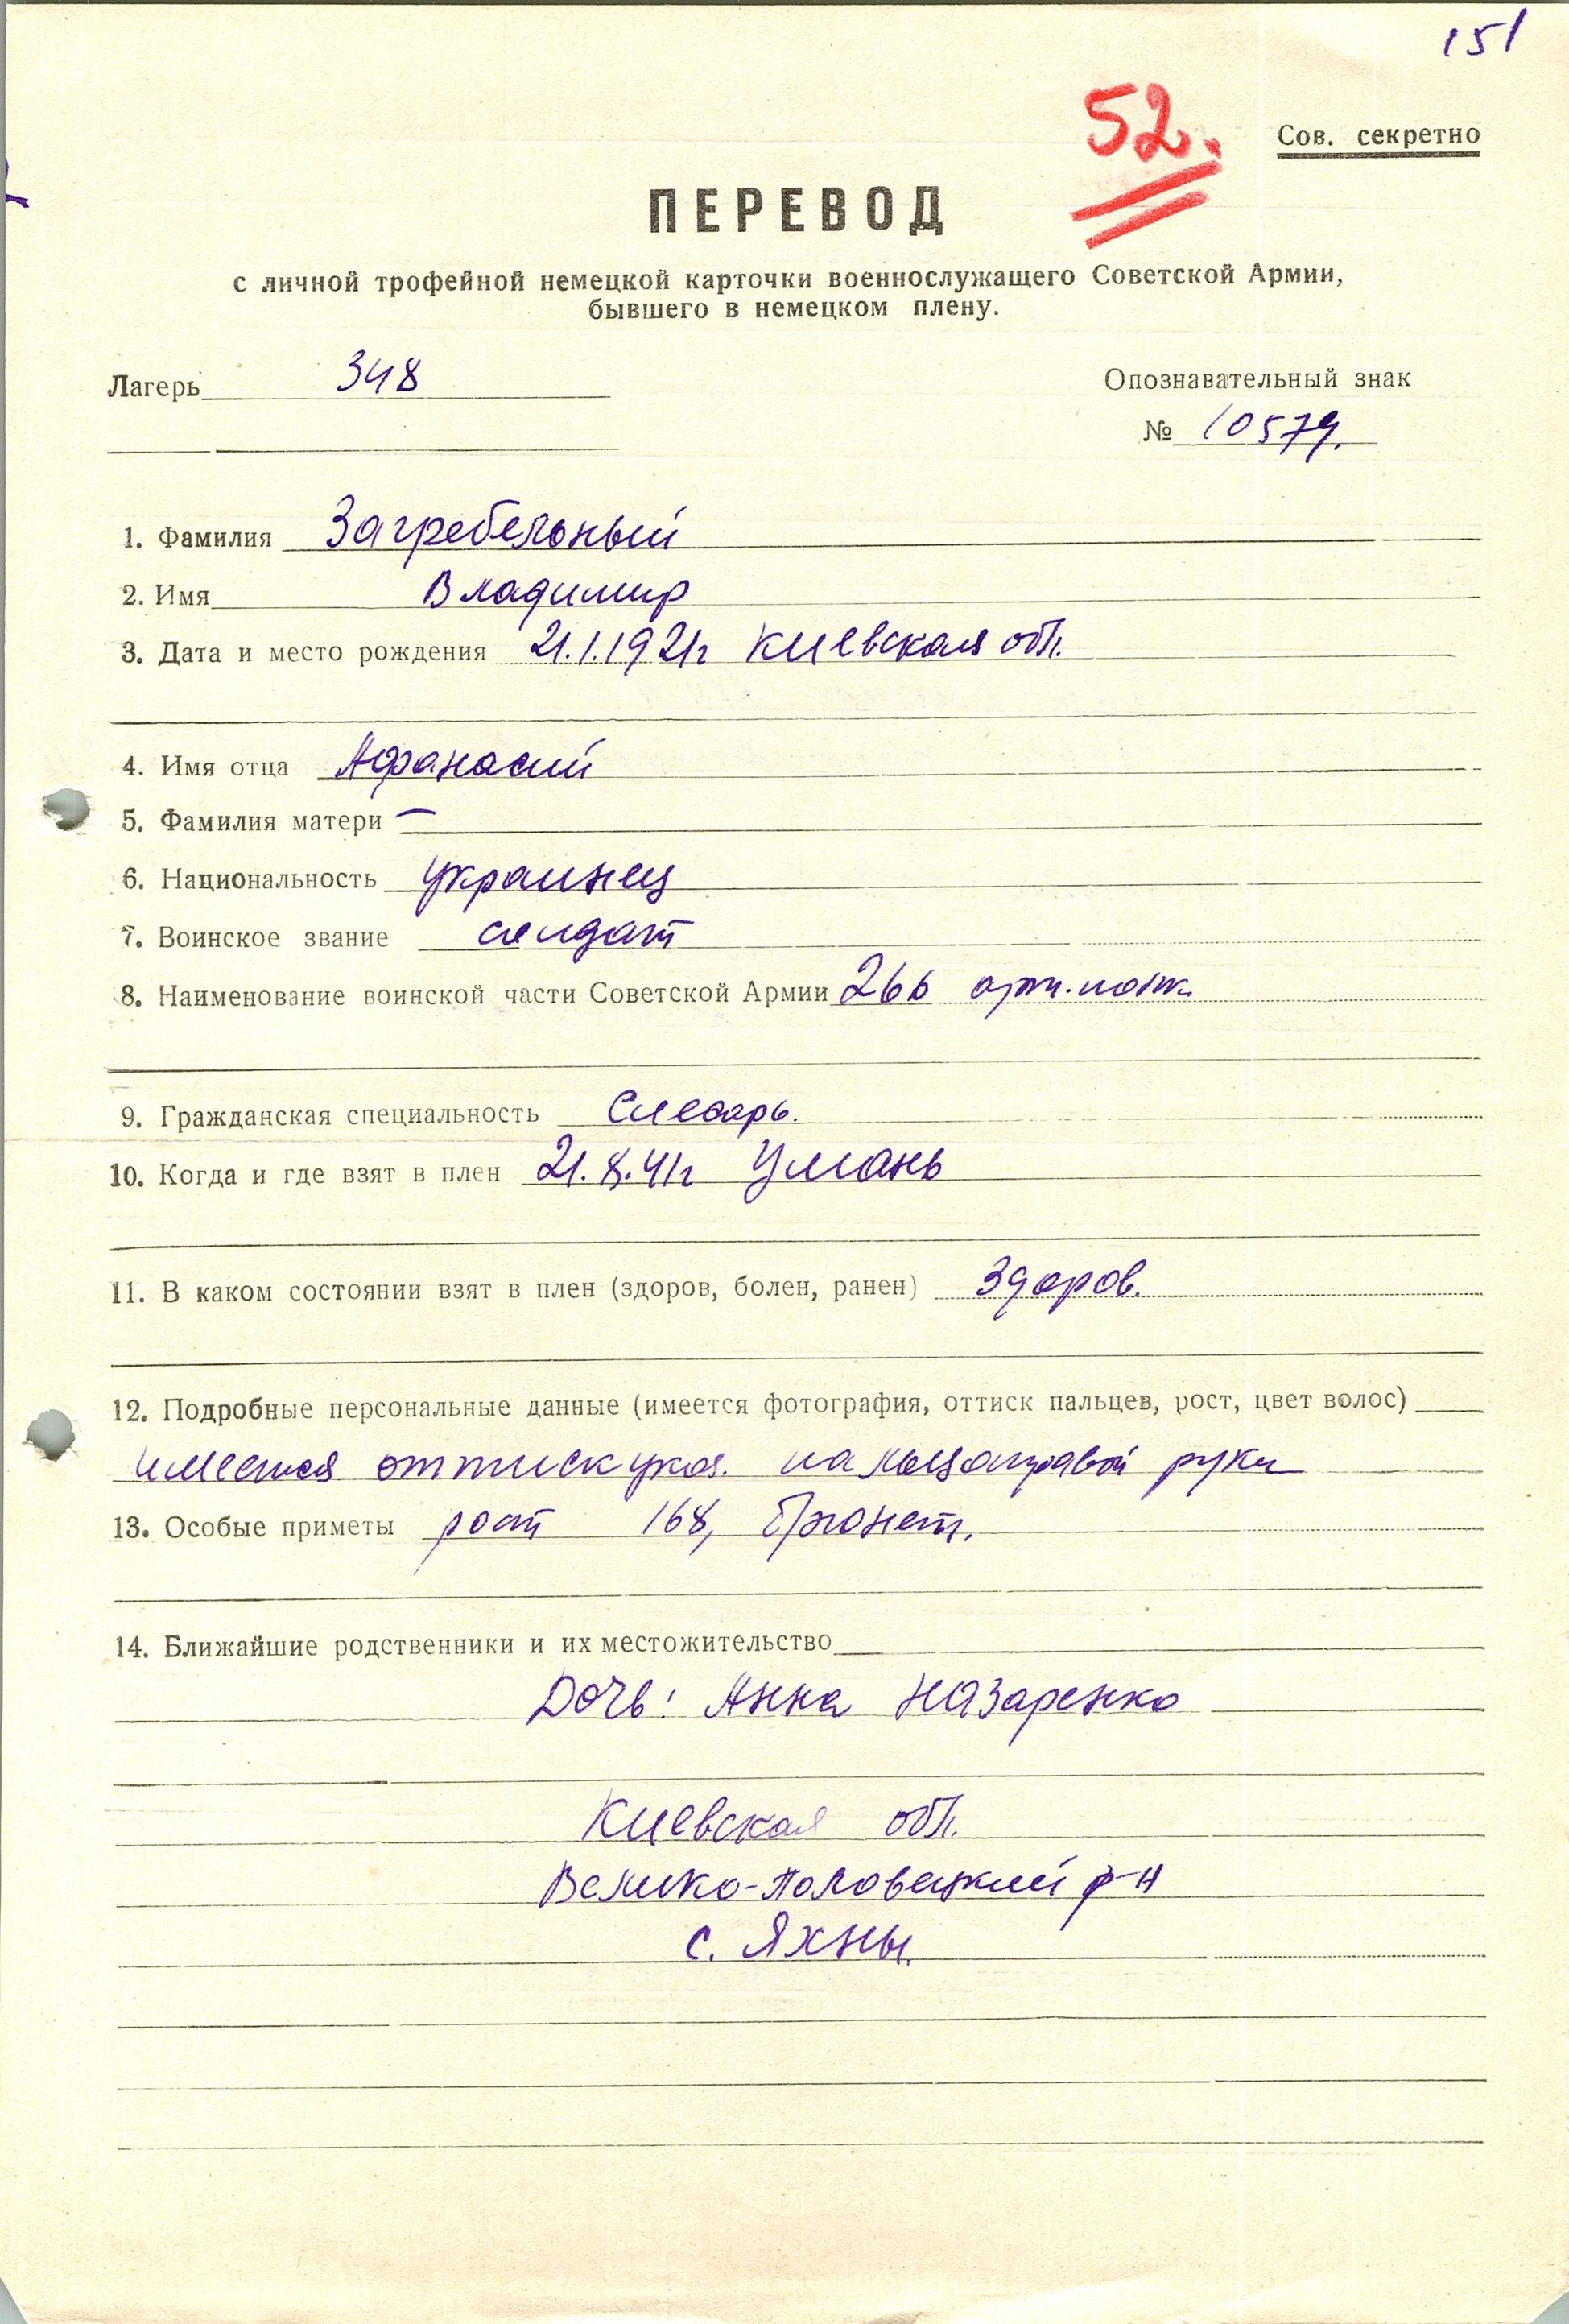 151
52.
Сов. секретно
ПЕРЕВОД
с личной трофейной немецкой карточки военнослужащего Советской Армии,
бывшего в немецком плену.
Лагерь 348
Опознавательный знак
№ 10579.
1. Фамилия Загребельный
2. Имя Владимир
3. Дата и место рождения 21.1.1921г Киевская обл.
4. Имя отца Афанасий
5. Фамилия матери —
6. Национальность украинец
7. Воинское звание солдат
8. Наименование воинской части Советской Армии 266 арт. полк
9. Гражданская специальность Слесарь.
10. Когда и где взят в плен 21.8.41г Умань
11. В каком состоянии взят в плен (здоров, болен, ранен) Здоров.
12. Подробные персональные данные (имеется фотография, оттиск пальцев, рост, цвет волос)
имеется оттиск указ. пальца правой руки
13. Особые приметы рост 168, брюнет.
14. Ближайшие родственники и их местожительство
Дочь: Анна Назаренко
Киевская обл.
Велико-Половецкий р-н
с. Яхны.